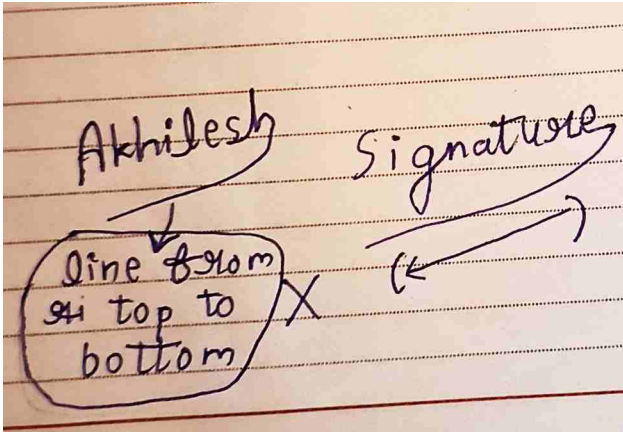 Akhilesh
Signature
line from
ri top to
bottom
X